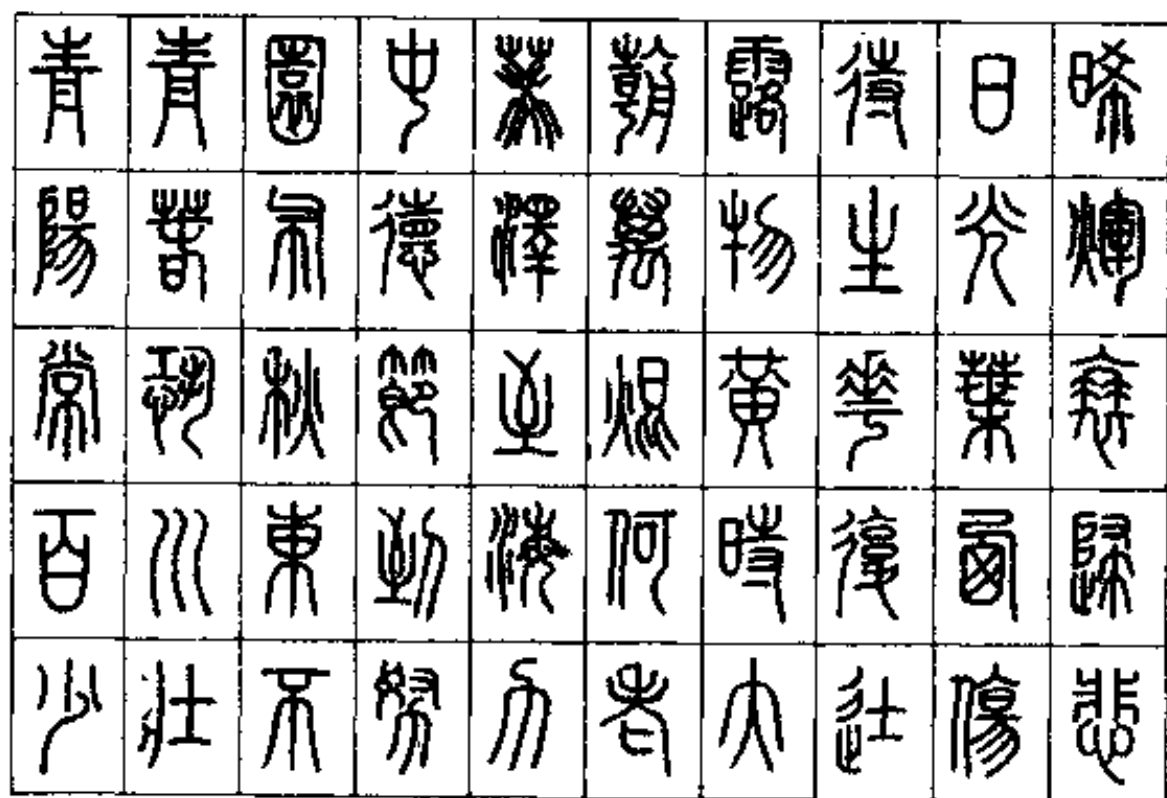 青青園中葵朝露待日晞
陽春布德澤萬物生光煇
常恐秋節至焜黃華葉衰
百川東到海何時復西歸
少壯不努力老大徒傷悲